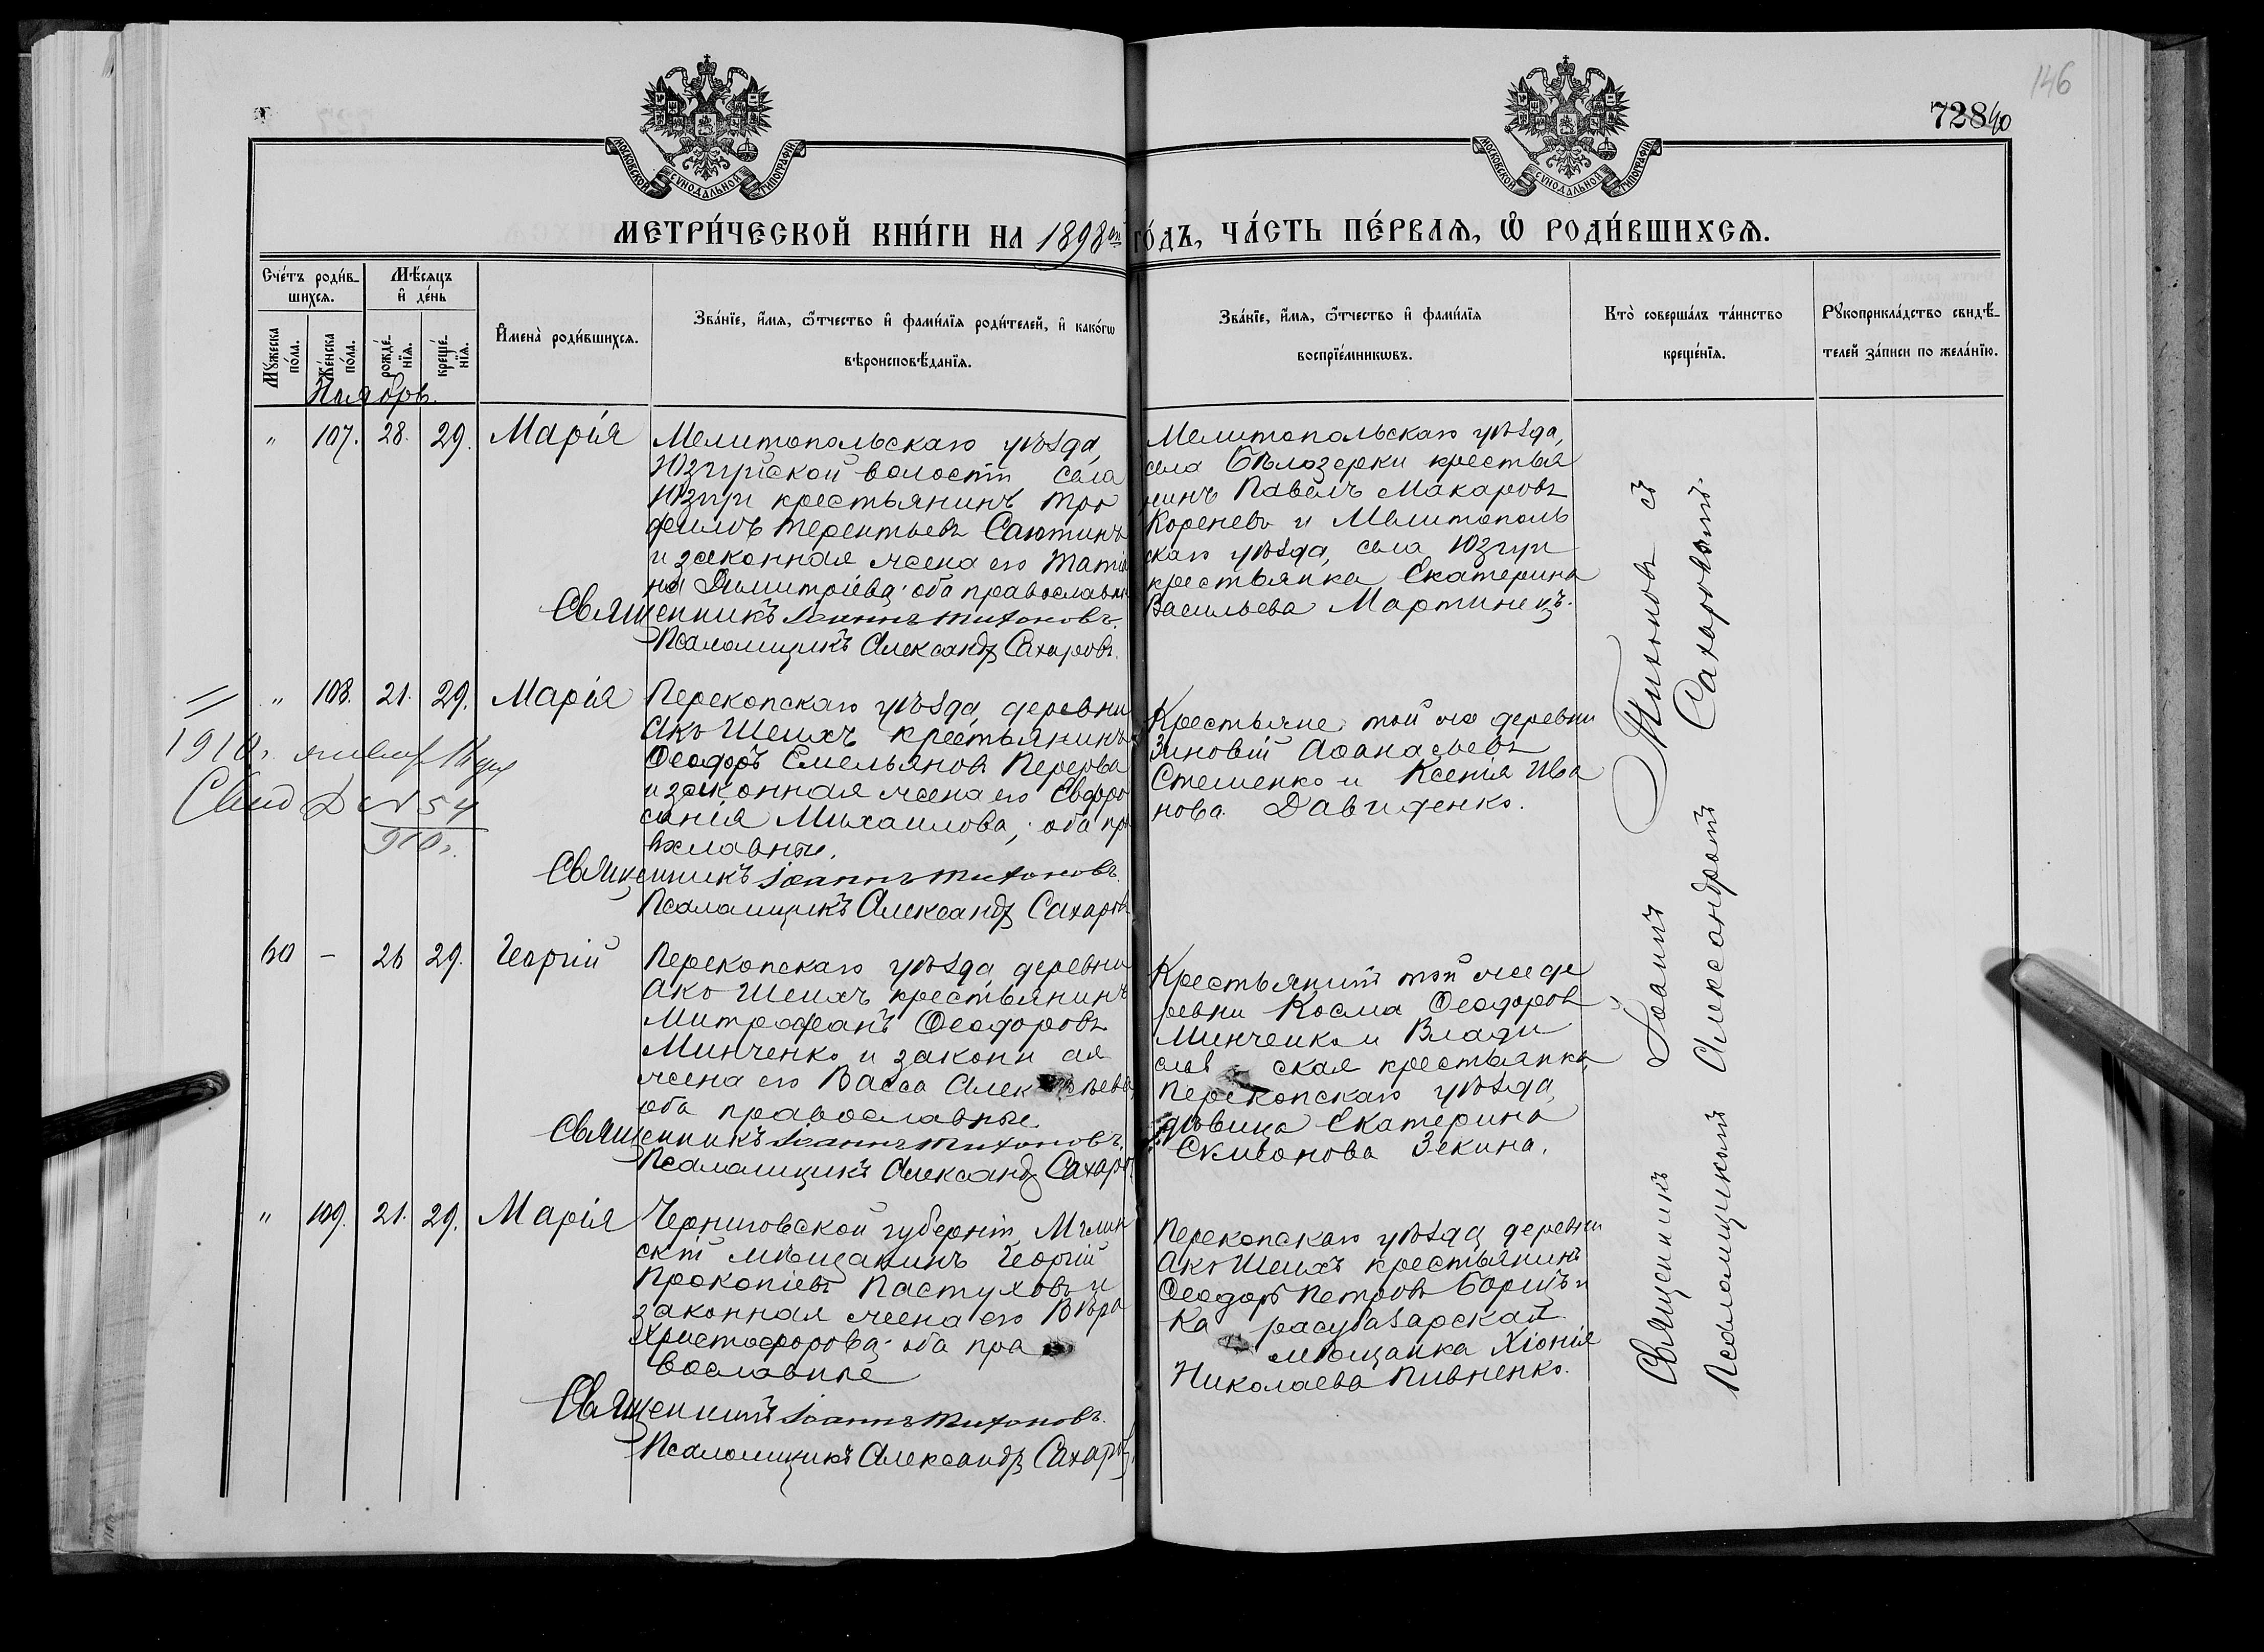 146
728 40
МОСКОВСКОЙ СУНОДАЛЬНОЙ ТИПОГРАФІИ
МОСКОВСКОЙ СУНОДАЛЬНОЙ ТИПОГРАФІИ
МЕТРИ́ЧЕСКОЙ КНИ́ГИ НА 1898ый ГО́ДЪ, ЧА́СТЬ ПЕ́РВАѦ, Ѽ РОДИ́ВШИХСѦ.
Сче́тъ роди́в-
шихсѧ.
Мѣ́сѧцъ
и҆ де́нь
Мꙋ́жеска по́ла.
Же́нска по́ла.
рожде́-нїѧ.
креще́-нїѧ.
И҆мена̀ роди́вшихсѧ.
Зва́нїе, и҆́мѧ, ѻ҆́тчество и҆ фами́лїѧ роди́телей, и҆ како́гѡ
вѣроисповѣ́данїѧ.
Зва́нїе, и҆́мѧ, ѻ҆́тчество и҆ фами́лїѧ
воспрїе́мникѡвъ.
Кто̀ соверша́лъ та́инство
креще́нїѧ.
Рꙋкоприкла́дство свидѣ́-
телей за́писи по жела́нїю.
Ноябрь.
" 107. 28. 29. Марія
Мелитопольскаго уѣзда,
Юзгуйской волости села
Юзгуи крестьянинъ Тро
фимъ Терентьевъ Саютинъ
и законная жена его Татія
на Димитріева; оба православн
Священникъ Іоаннъ Тихоновъ.
Псаломщикъ Александръ Сахаровъ.
Мелитопольскаго уѣзда,
села Бѣлозерки крестья
нинъ Павелъ Макаровъ
Кореневъ и Мелитополь
скаго уѣзда, села Юзгуи
крестьянка Екатерина
Васильева Мартинецъ.
" 108. 21. 29. Марія
Перекопскаго уѣзда деревни
Акъ Шеихъ крестьянинъ
Ѳеодоръ Емельяновъ Перерва
и законная жена его Евфро
синія Михаилова; оба пра
вославные.
Священникъ Іоаннъ Тихоновъ.
Псаломщикъ Александръ Сахаровъ
1910г. январ 18 дня
Свид № 54
910г.
Крестьяне той же деревни
Зиновій Аѳанасьевъ
Стешенко и Ксенія Ива
нова Давиденко.
60 – 26 29. Георгій
Перекопскаго уѣзда деревни
Акъ Шеихъ крестьянинъ
Митрофанъ Ѳеодоровъ
Минченко и законн ая
жена его Васса Алек ѣева
оба православные
Священникъ Іоаннъ Тихоновъ.
Псаломщикъ Александръ Сахаро
Крестьянинъ той же де
ревни Косма Ѳеодоровъ
Минченко и Влади
слав ская крестьянка
Перекопскаго уѣзда,
дѣвица Екатерина
Симонова Зекина.
" 109. 21. 29. Марія
Черниговской губерніи, Мглин
скій мѣщанинъ Георгій
Прокопіевъ Пастуховъ и
законная жена его Вѣра
Христофорова; оба пра
вославные
Священникъ Іоаннъ Тихоновъ.
Псаломщикъ Александръ Сахаровъ
Перекопскаго уѣзда деревни
Акъ Шеихъ крестьянинъ
Ѳеодоръ Петровъ Борищъ и
Ка расубазарская
мѣщанка Хіонія
Николаева Пивненко.
Священникъ Іоаннъ Тихоновъ съ
Псаломщикомъ Александромъ Сахаровымъ.